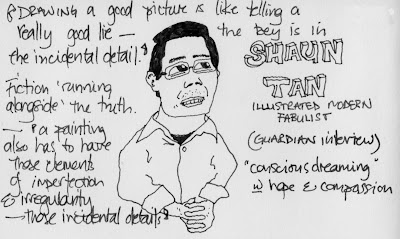 "DRAWING a good picture is like telling a
really good lie — the key is in
the incidental detail."
Fiction 'running
alongside' the truth.
— "a painting
also has to have
those elements
of imperfection
& irregularity
— those incidental details"
SHAUN
TAN
ILLUSTRATED MODERN
FABULIST
(GUARDIAN interview)
"conscious dreaming"
w hope & compassion